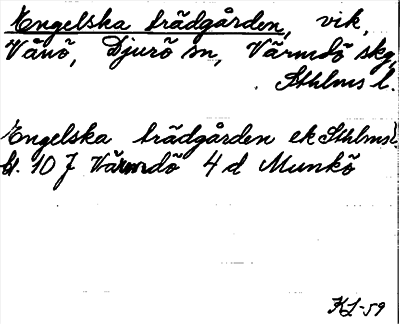 Engelska trädgården, vik,
Vånö, Djurö sn, Värmdö skg,
Sthlms l.
Engelska trädgården ek Sthlms l.
bl. 10 J Värmdö 4 d Munkö
KL-59